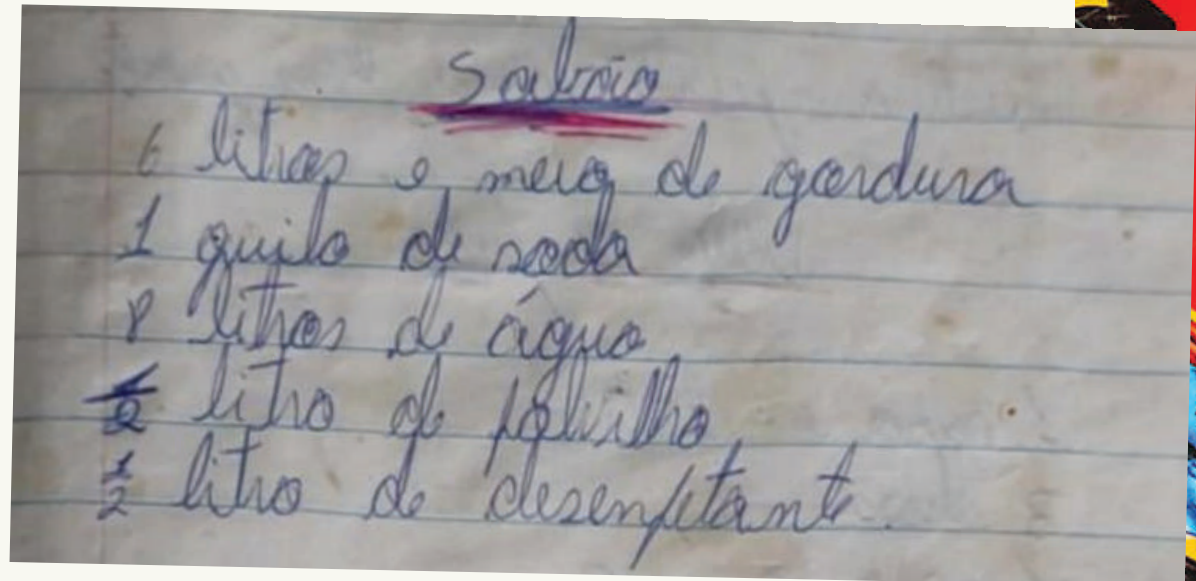 Sabão
6 litros e meia de gordura
1 quilo de soda
8 litros de água
1/2 litro de polvilho
1/2 litro de desenfetante